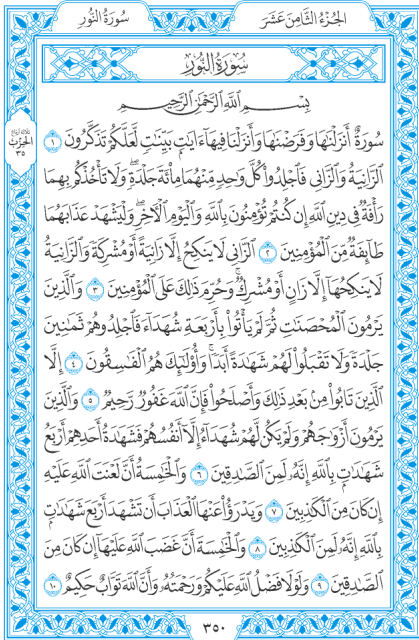 الجُزْءُ الثَّامِنَ عَشَرَ
سُورَةُ النُّور
سُورَةُ النُّورِ
بِسْمِ اللَّهِ الرَّحْمَٰنِ الرَّحِيمِ
سُورَةٌ أَنزَلْنَٰهَا وَفَرَضْنَٰهَا وَأَنزَلْنَا فِيهَآ ءَايَٰتٍۭ بَيِّنَٰتٍ لَّعَلَّكُمْ تَذَكَّرُونَ ١
ثلاثة أرباع
الحِزْب
٣٥
ٱلزَّانِيَةُ وَٱلزَّانِى فَٱجْلِدُوا۟ كُلَّ وَٰحِدٍ مِّنْهُمَا مِا۟ئَةَ جَلْدَةٍ ۖ وَلَا تَأْخُذْكُم بِهِمَا
رَأْفَةٌ فِى دِينِ ٱللَّهِ إِن كُنتُمْ تُؤْمِنُونَ بِٱللَّهِ وَٱلْيَوْمِ ٱلْءَاخِرِ ۖ وَلْيَشْهَدْ عَذَابَهُمَا
طَآئِفَةٌ مِّنَ ٱلْمُؤْمِنِينَ ٢ ٱلزَّانِى لَا يَنكِحُ إِلَّا زَانِيَةً أَوْ مُشْرِكَةً وَٱلزَّانِيَةُ
لَا يَنكِحُهَآ إِلَّا زَانٍ أَوْ مُشْرِكٌ ۚ وَحُرِّمَ ذَٰلِكَ عَلَى ٱلْمُؤْمِنِينَ ٣ وَٱلَّذِينَ
يَرْمُونَ ٱلْمُحْصَنَٰتِ ثُمَّ لَمْ يَأْتُوا۟ بِأَرْبَعَةِ شُهَدَآءَ فَٱجْلِدُوهُمْ ثَمَٰنِينَ
جَلْدَةً وَلَا تَقْبَلُوا۟ لَهُمْ شَهَٰدَةً أَبَدًا ۚ وَأُو۟لَٰٓئِكَ هُمُ ٱلْفَٰسِقُونَ ٤ إِلَّا
ٱلَّذِينَ تَابُوا۟ مِنۢ بَعْدِ ذَٰلِكَ وَأَصْلَحُوا۟ فَإِنَّ ٱللَّهَ غَفُورٌ رَّحِيمٌ ٥ وَٱلَّذِينَ
يَرْمُونَ أَزْوَٰجَهُمْ وَلَمْ يَكُن لَّهُمْ شُهَدَآءُ إِلَّآ أَنفُسُهُمْ فَشَهَٰدَةُ أَحَدِهِمْ أَرْبَعُ
شَهَٰدَٰتٍۭ بِٱللَّهِ ۙ إِنَّهُۥ لَمِنَ ٱلصَّٰدِقِينَ ٦ وَٱلْخَٰمِسَةُ أَنَّ لَعْنَتَ ٱللَّهِ عَلَيْهِ
إِن كَانَ مِنَ ٱلْكَٰذِبِينَ ٧ وَيَدْرَؤُا۟ عَنْهَا ٱلْعَذَابَ أَن تَشْهَدَ أَرْبَعَ شَهَٰدَٰتٍۭ
بِٱللَّهِ ۙ إِنَّهُۥ لَمِنَ ٱلْكَٰذِبِينَ ٨ وَٱلْخَٰمِسَةَ أَنَّ غَضَبَ ٱللَّهِ عَلَيْهَآ إِن كَانَ مِنَ
ٱلصَّٰدِقِينَ ٩ وَلَوْلَا فَضْلُ ٱللَّهِ عَلَيْكُمْ وَرَحْمَتُهُۥ وَأَنَّ ٱللَّهَ تَوَّابٌ حَكِيمٌ ١٠
٣٥٠